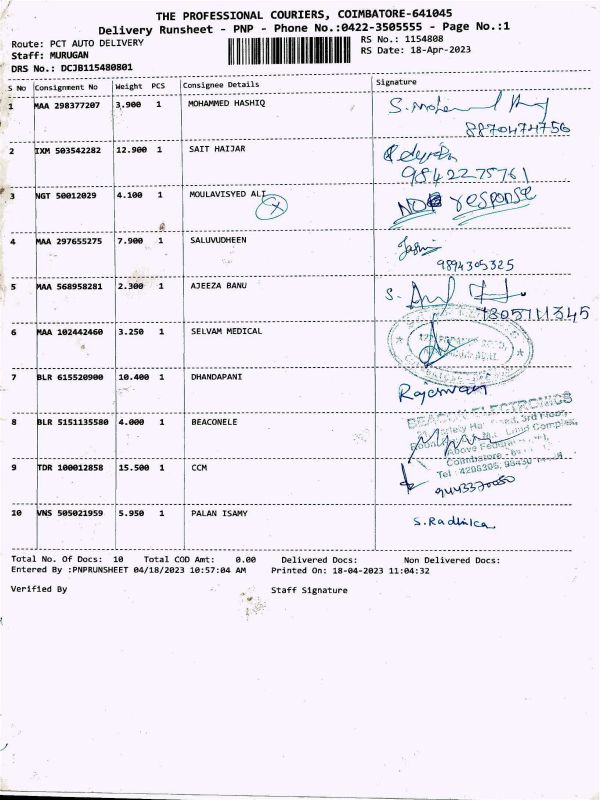 THE PROFESSIONAL COURIERS, COIMBATORE-641045
Delivery Runsheet - PNP - Phone No.:0422-3505555 - Page No.:1
Route: PCT AUTO DELIVERY RS No.: 1154808
Staff: MURUGAN RS Date: 18-Apr-2023
DRS No.: DCJB115480801
S No Consignment No Weight PCS Consignee Details Signature
1 MAA 298377207 3.900 1 MOHAMMED HASHIQ
8870474756
2 IXM 503542282 12.900 1 SAIT HAIJAR
9842275761
3 NGT 50012029 4.100 1 MOULAVISYED ALI NO response
4 MAA 297655275 7.900 1 SALUVUDHEEN
9894305325
5 MAA 568958281 2.300 1 AJEEZA BANU S.
7305711345
6 MAA 102442460 3.250 1 SELVAM MEDICAL
7 BLR 615520900 10.400 1 DHANDAPANI Rajeswari
8 BLR 5151135580 4.000 1 BEACONELE BEACON ELECTRONICS
3rd Floor,
Complex,
Above Federal
Coimbatore -
9 TDR 100012858 15.500 1 CCM Tel : 4206305,
9443370050
10 VNS 505021959 5.950 1 PALAN ISAMY S. Radhika
Total No. Of Docs: 10 Total COD Amt: 0.00 Delivered Docs: Non Delivered Docs:
Entered By :PNPRUNSHEET 04/18/2023 10:57:04 AM Printed On: 18-04-2023 11:04:32
Verified By Staff Signature